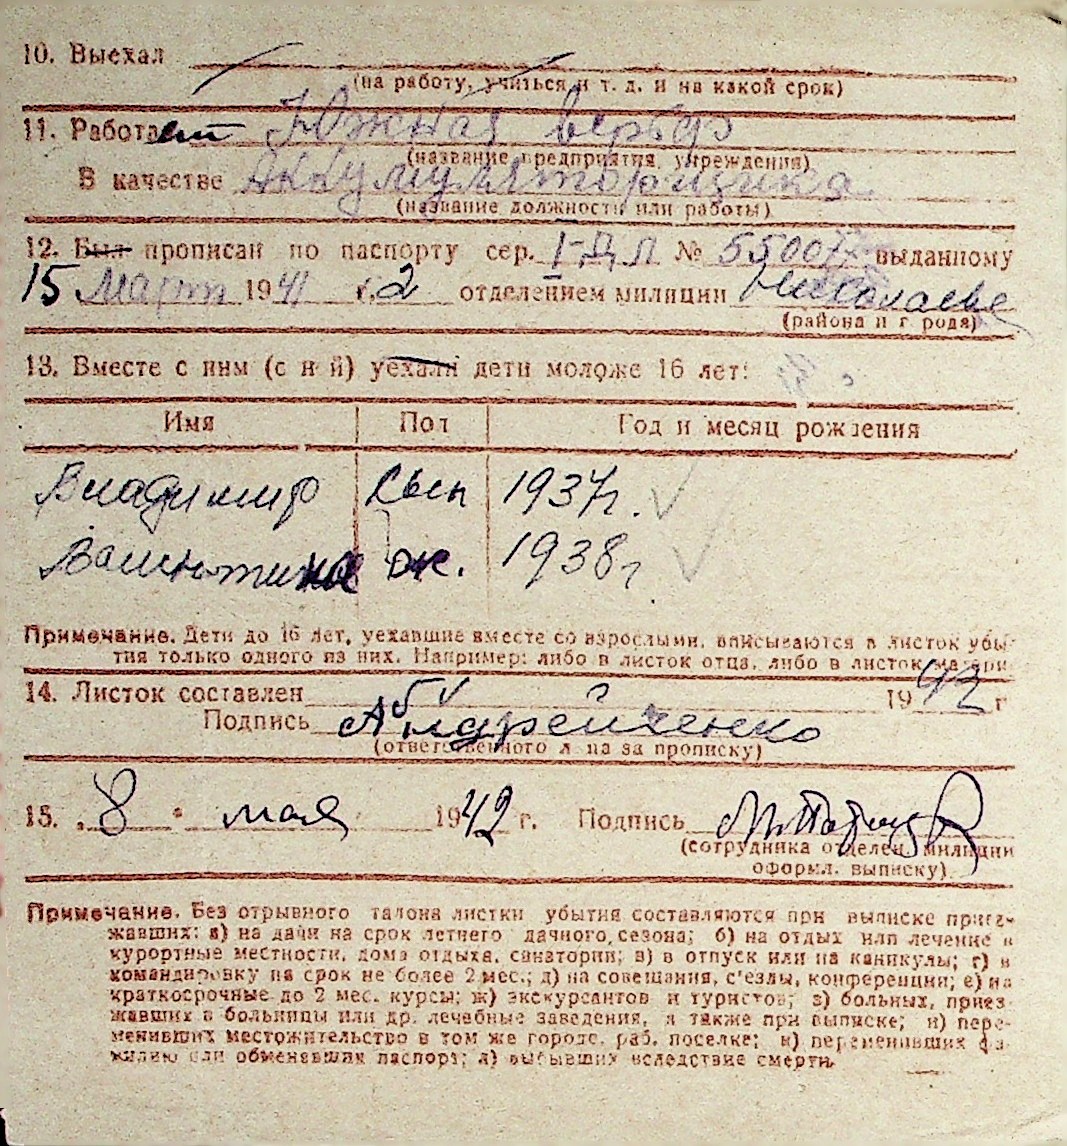 10. Выехал
(на работу, учиться и т. д. и на какой срок)
11. Работает Южная верфь
(название предприятия, учреждения)
В качестве Аккумуляторщика
(название должности или работы)
12. Был прописан по паспорту сер. I-ДЛ № 55007 выданному
15 Март 1941 г. 2 отделением милиции Николаева
(района и города)
13. Вместе с ним (с ней) уехали дети моложе 16 лет:
Имя Пол Год и месяц рождения
Владимир Сын 1937г.
Валентина ж. 1938г
Примечание. Дети до 16 лет, уехавшие вместе со взрослыми, вписываются в листок убы-
тия только одного из них. Например: либо в листок отца, либо в листок матери
14. Листок составлен 1942 г
Подпись
(ответственного лица за прописку)
15. „8 " мая 1942 г. Подпись
(сотрудника отделен. милиции
оформл. выписку)
Примечание. Без отрывного талона листки убытия составляются при выписке приез-
жавших: а) на дачи на срок летнего дачного сезона; б) на отдых или лечение в
курортные местности, дома отдыха, санатории; в) в отпуск или на каникулы; г) в
командировку на срок не более 2 мес.; д) на совещания, с'езды, конференции; е) на
краткосрочные до 2 мес. курсы; ж) экскурсантов и туристов; з) больных, приез-
жавших в больницы или др. лечебные заведения, а также при выписке; и) пере-
менивших местожительство в том же городе, раб. поселке; к) переменивших фа-
милию или обменявших паспорт; л) выбывших вследствие смерти.